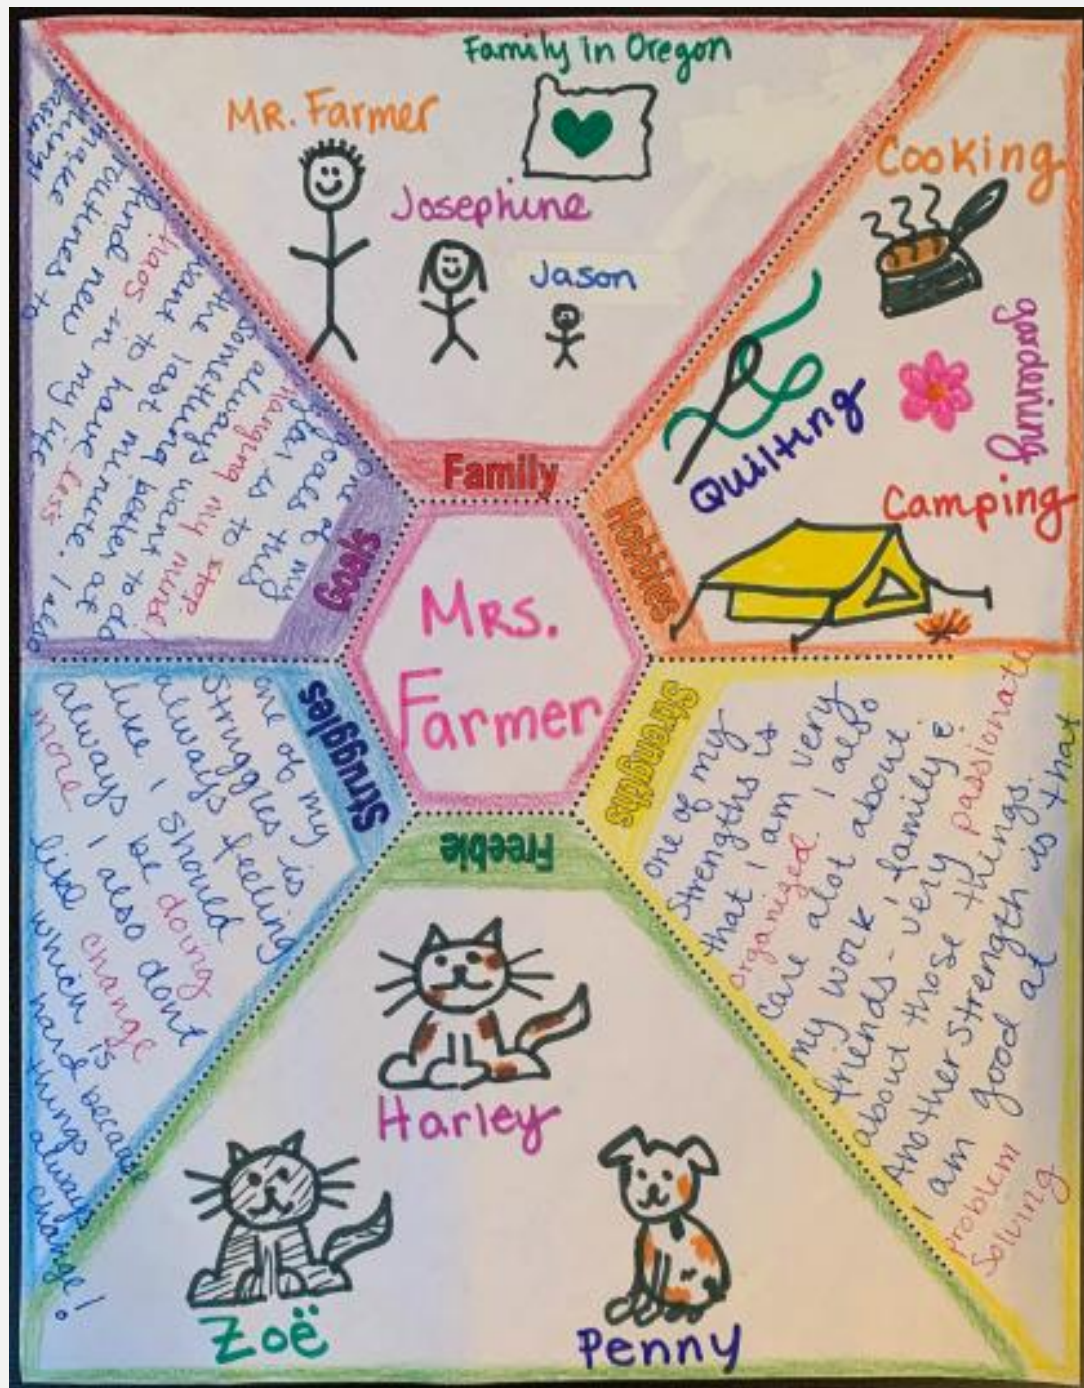 Family in Oregon
MR. Farmer
Josephine
Jason
Family
Cooking
gardening
Quilting
Camping
Hobbies
MRS.
Farmer
Strengths
one of my
Strengths is
that I am very
organized. I also
care alot about
my work, family &
friends - very passionate
about those things.
Another Strength is that
I am good at
problem
Solving
Freebie
Harley
Zoë
Penny
Struggles
one of my
Struggles is
always feeling
like I should
always be doing
more I also dont
like change
which is
hard because
things
always
change!
Goals
one of my
goals
is to
stop
my mind!
always want to do
something better at
the last minute. I also
want to have less
in my life
find new
routines to
make
things